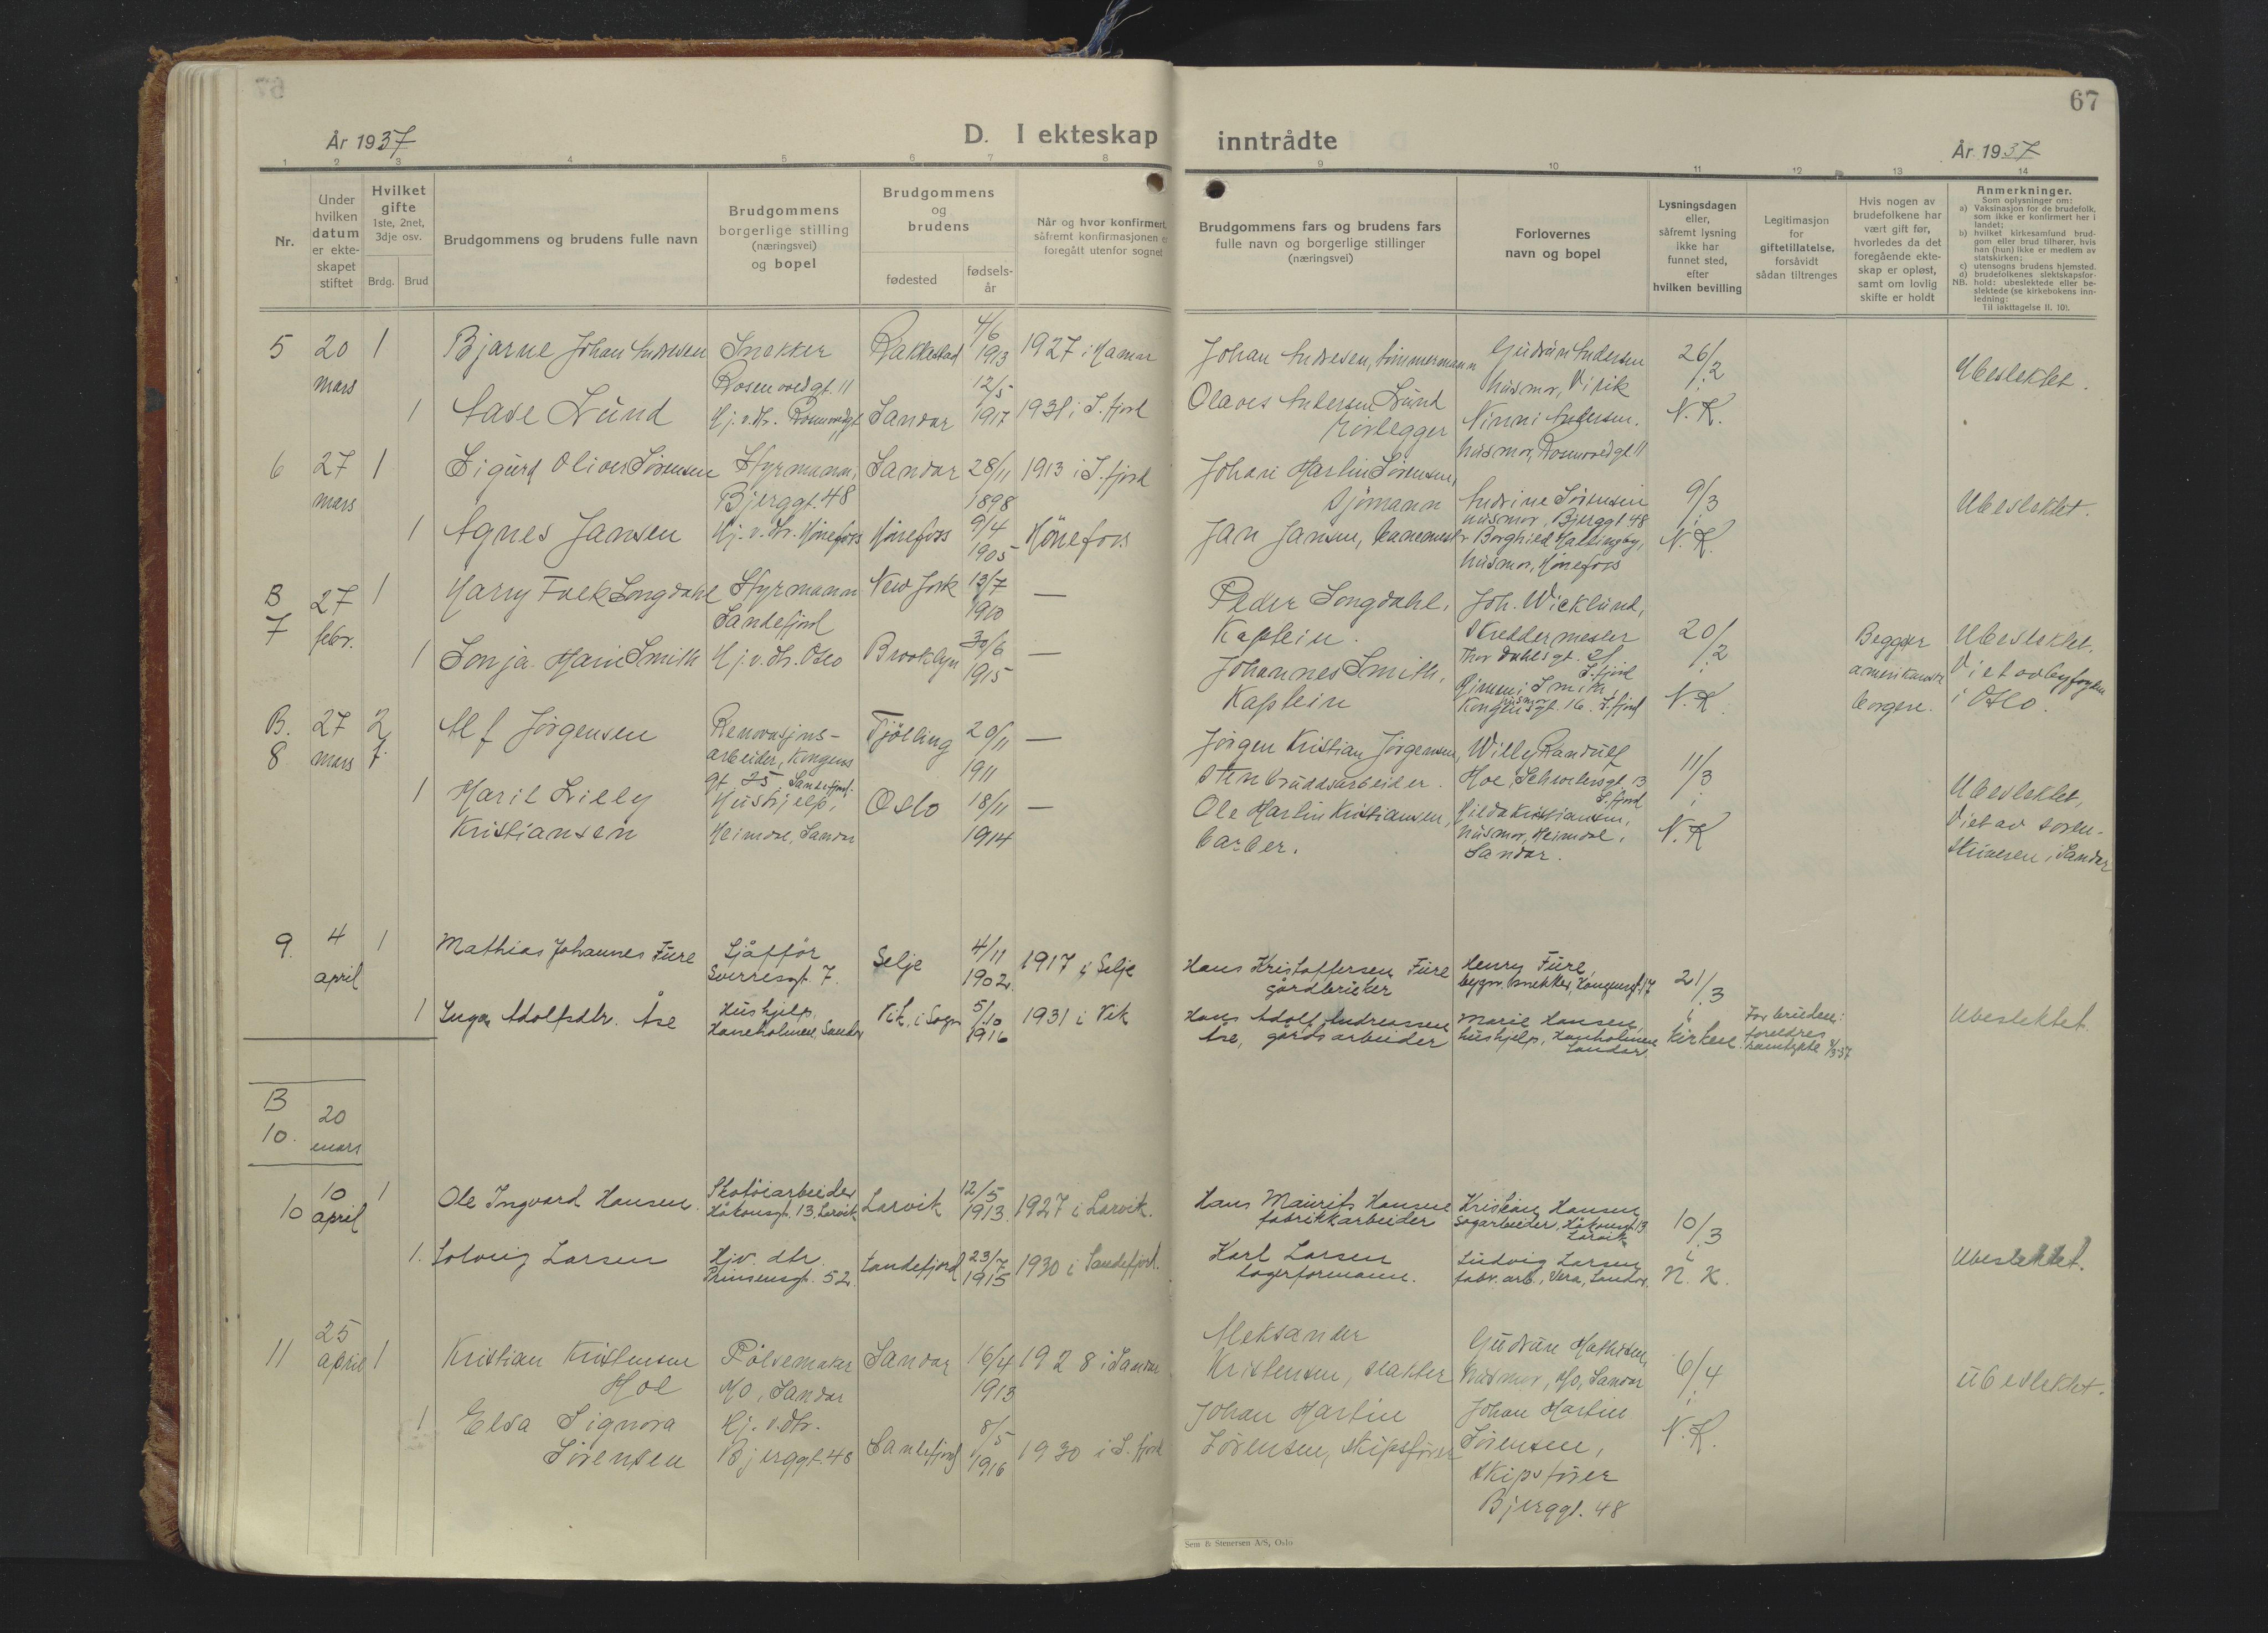 67
År 1937
D. I ekteskap inntrådte
År 1937
1 2 3 4 5 6 7 8 9 10 11 12 13 14
Nr.
Under
hvilken
datum
er ekte-
skapet
stiftet
Hvilket
gifte
1ste, 2net,
3dje osv.
Brdg. Brud
Brudgommens og brudens fulle navn
Brudgommens
borgerlige stilling
(næringsvei)
og bopel
Brudgommens
og
brudens
fødested
fødsels-
år
Når og hvor konfirmert,
såfremt konfirmasjonen er
foregått utenfor sognet
Brudgommens fars og brudens fars
fulle navn og borgerlige stillinger
(næringsvei)
Forlovernes
navn og bopel
Lysningsdagen
eller,
såfremt lysning
ikke har
funnet sted,
efter
hvilken bevilling
Legitimasjon
for
giftetillatelse,
forsåvidt
sådan tiltrenges
Hvis nogen av
brudefolkene har
vært gift før,
hvorledes da det
foregående ekte-
skap er opløst,
samt om lovlig
skifte er holdt
Anmerkninger.
Som oplysninger om:
a) Vaksinasjon for de brudefolk,
som ikke er konfirmert her i
landet;
b) hvilket kirkesamfund brud-
gom eller brud tilhører, hvis
han (hun) ikke er medlem av
statskirken;
c) utensogns brudens hjemsted.
d) brudefolkenes slektskapsfor-
NB. hold: ubeslektede eller be-
slektede (se kirkebokens inn-
ledning:
Til iakttagelse II. 10).
5 20 mars 1 Bjarne Johan Andresen Snekker Rosenvoldgt. 11 Rakkestad 4/6 1913 1927 i Hamar
Johan Andresen, tømmermann Gudrun Andersen husmor, Virik 26/2 i N.K. Ubeslektet.
1 Aase Lund Hj.v.dtr. Rosenvoldgt Sandar 12/5 1917 1931 i S.fjord
Olaves Andersen Lund rørlegger Ninni Andersen. husmor, Rosenvoldgt 11
6 27 mars 1 Sigurd Oliver Sörensen Styrmann, Bjerggt. 48 Sandar 28/11 1898 1913 i S.fjord
Johan Martin Sörensen, sjömann Andrine Sörensen husmor, Bjerggt 48 9/3 i N.K. Ubeslektet.
1 Agnes Jansen Hj.v.dtr. Hönefoss Hönefoss 9/4 1905 Hönefoss
Jan Jansen, Borghild Hallingby, husmor, Hönefoss
B 7 27 febr. 1 Harry Falk Longdahl Styrmann Sandefjord New York 13/7 1910 —
Peder Longdahl, Kaptein. Joh. Wicklund, skreddermester Thor Dahlsgt. 21 S.fjord 20/2 i N.K. Begge amerikanske borgere. Ubeslektet. Viet av byfogden i Oslo.
1 Sonja Marie Smith Hj.v.dtr. Oslo Brooklyn 30/6 1915 —
Johannes Smith, Kaptein Smith, husmor Kongensgt. 16. S.fjord
B. 8 27 mars 2 Alf Jörgensen Renovasjons-
arbeider, Kongens
gt. 25, Sandefjord. Tjölling 20/11 1911 —
Jörgen Kristian Jörgensen, stenbruddsarbeider. Willy Randulf Moe, 13 S.fjord 11/3 i N.K Ubeslektet, Viet av soren-
skriveren i Sandar
1 Marit Lilly Kristiansen Hushjelp, Heimdal, Sandar Oslo 18/11 1914 —
Ole Martin Kristiansen, barber. Hilda Kristiansen, husmor, Heimdal, Sandar.
9. 4 april 1 Mathias Johannes Füre Sjåffør Sverresgt 7. Selje 4/11 1902. 1917 i Selje
Hans Kristoffersen Füre gårdbruker Henry Füre, bygn. snekker, Kongensgt. 17 21/3 i kirken.
1 Inga Adolfsdtr. Åse Hushjelp, Haneholmen, Sandar Vik, i Sogn 5/10 1916 1931 i Vik
Hans Adolf Andreassen Åse, gårdsarbeider Marie Hansen, hushjelp, Haneholmen Sandar For bruden: foreldres samtykke 2/3-37 Ubeslektet.
B 10. 20 mars
10 10 april 1 Ole Ingvard Hansen. Skotöiarbeider Håkonsgt. 13, Larvik Larvik 12/5 1913. 1927 i Larvik.
Hans Maurits Hansen fabrikkarbeider Kristian Hansen sagarbeider, Håkonsgt 13 Larvik 10/3 i N. K. Ubeslektet.
1. Solveig Larsen Hjv. dtr. Prinsensgt. 52. Sandefjord 23/7 1915 1930 i Sandefjord.
Karl Larsen lagerformann. Ludvig Larsen fabr. arb., Vera, Sandar.
11 25 april 1 Kristian Kristensen Moe Pölsemaker Mo, Sandar Sandar 16/4 1913 1928 i Sandar
Aleksander Kristensen, slakter Gudrun Mathisen, husmor, Mo, Sandar 6/4 i N.K. Ubeslektet.
1 Elsa Signora Sörensen Hj.v.dtr. Bjerggt. 48 Sandefjord 8/5 1916 1930 i S.fjord
Johan Martin Sörensen, skipsförer Johan Martin Sörensen, Skipsförer Bjerggt. 48
Sem & Stenersen A/S, Oslo